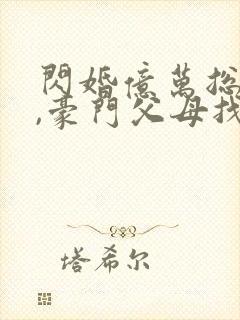 閃婚億萬総
,豪門父母找
塔希尔